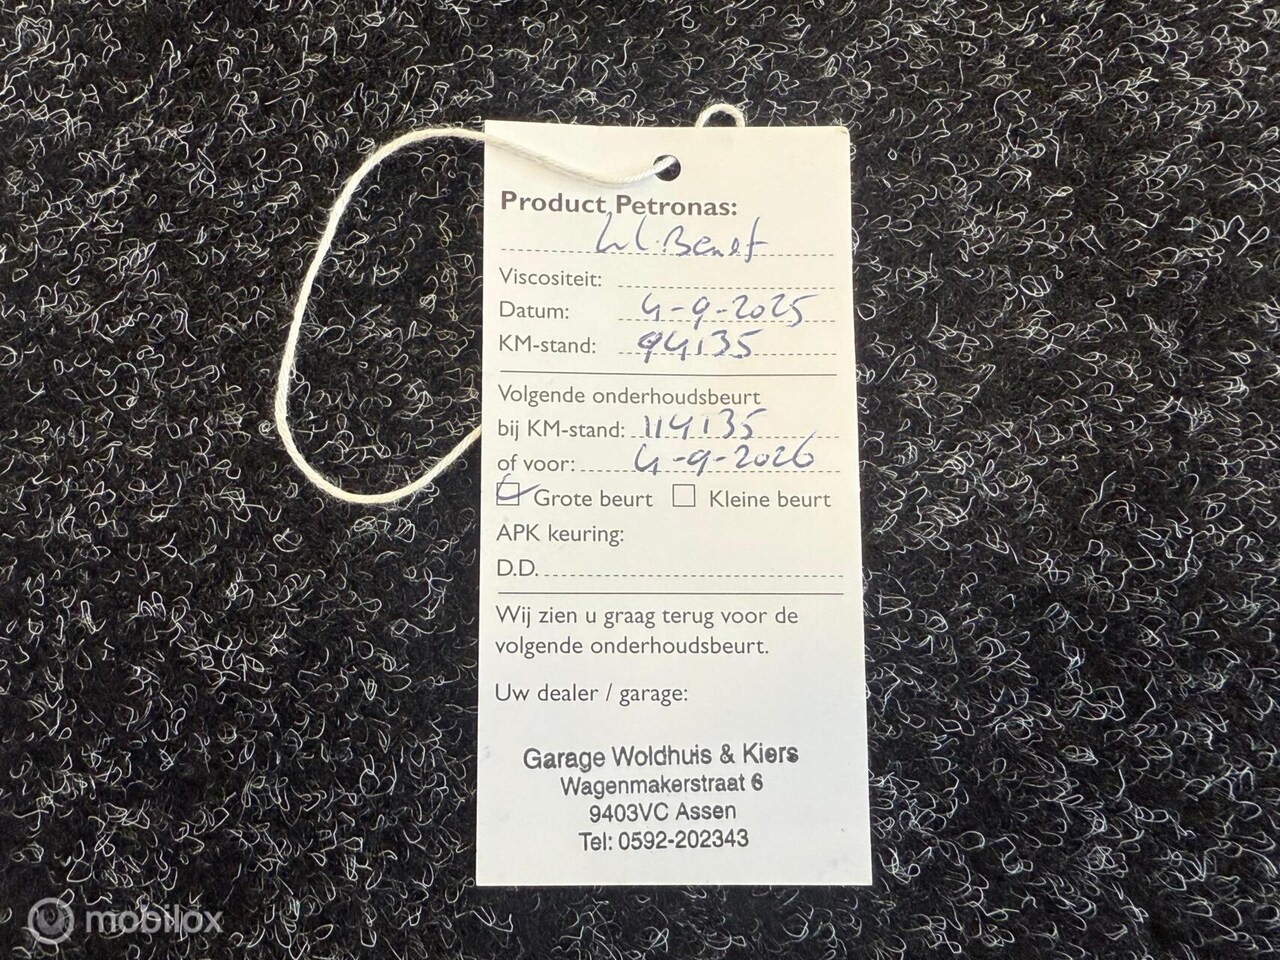 Product Petronas:
kl. Beurt
Viscositeit:
Datum: 4-9-2025
KM-stand: 94135
Volgende onderhoudsbeurt
bij KM-stand: 114135
of voor: 4-9-2026
Grote beurt Kleine beurt
APK keuring:
D.D.
Wij zien u graag terug voor de
volgende onderhoudsbeurt.
Uw dealer / garage:
Garage Woldhuis & Kiers
Wagenmakerstraat 6
9403VC Assen
Tel: 0592-202343
mobilox